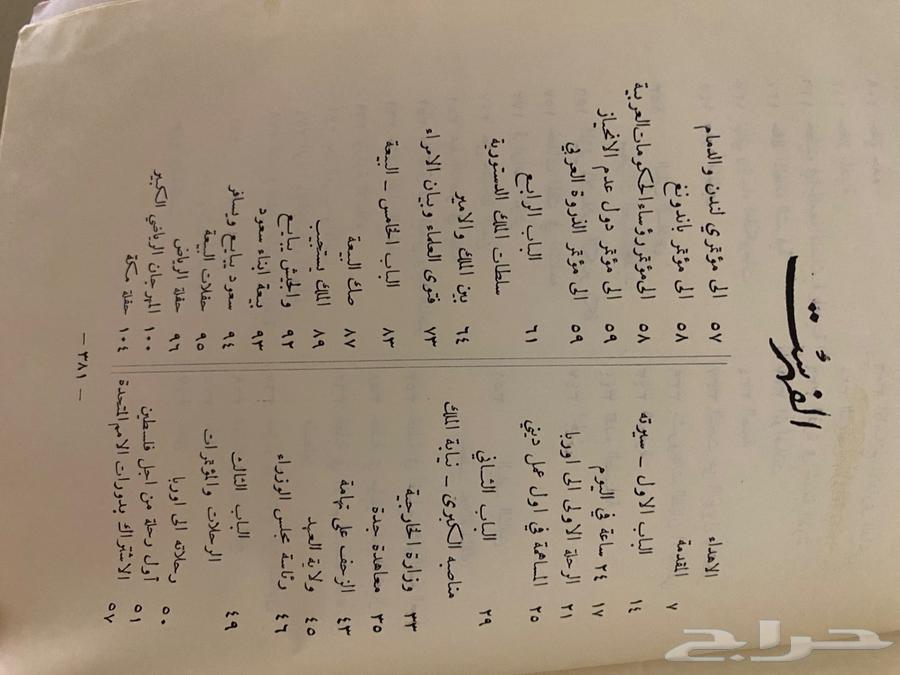 الفهرست
الاهداء
المقدمة ٧
الباب الاول - سيرته ١٤
٢٤ ساعة في اليوم ١٧
الرحلة الاولى الى اوربا ٢١
المساهمة في اول عمل ديني ٢٥
الباب الثاني ٢٩
مناصبه الكبرى - نيابة الملك
وزارة الخارجية ٣٣
معاهدة جدة ٣٥
الزحف على تهامة ٤٣
ولاية العهد ٤٥
رئاسة مجلس الوزراء ٤٦
الباب الثالث ٤٩
الرحلات والمؤتمرات
رحلاته الى اوربا ٥٠
أول رحلة من اجل فلسطين ٥١
الاشتراك بدورات الامم المتحدة ٥٧
الى مؤتمري لندن والدمام ٥٧
الى مؤتمر باندونغ ٥٨
الى مؤتمر رؤساء الحكومات العربية ٥٨
الى مؤتمر دول عدم الانحياز ٥٩
الى مؤتمر الذروة العربي ٥٩
الباب الرابع ٦١
سلطات الملك الدستورية
بين الملك والامير ٦٤
فتوى العلماء وبيان الامراء ٧٣
الباب الخامس - البيعة ٨٣
صك البيعة ٨٧
الملك يستجيب ٨٩
والجيش يبايع ٩٢
بيعة ابناء سعود ٩٣
سعود يبايع ويسافر ٩٤
حفلات البيعة ٩٥
حفلة الرياض ٩٦
المهرجان الرياضي الكبير ١٠٠
حفلة مكة ١٠٤
- ٣٨١ -
حراج